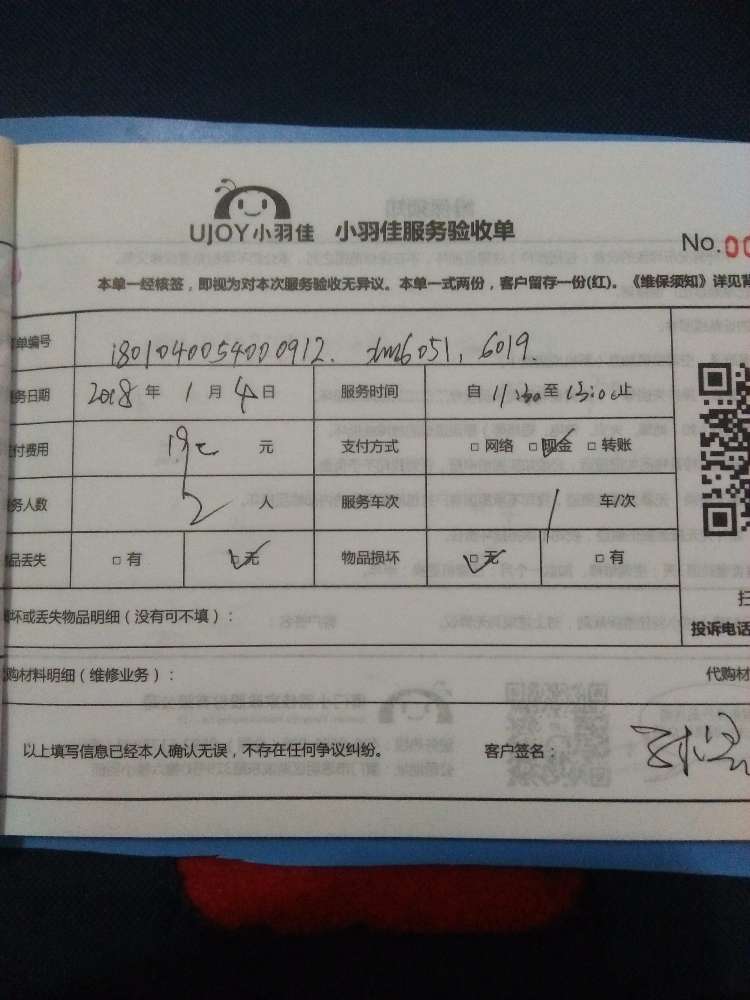 UJOY小羽佳 小羽佳服务验收单
No.00
本单一经核签，即视为对本次服务验收无异议。本单一式两份，客户留存一份(红)。《维保须知》详见背
单编号 1801040054000912. xm6051, 6019.
务日期 2018 年 1 月 4 日 服务时间 自 11:30 至 13:00 止
付费用 元 支付方式 □ 网络 □ 现金 □ 转账
务人数 2 人 服务车次 1 车/次
品丢失 □ 有 □ 无 物品损坏 □ 无 □ 有
坏或丢失物品明细（没有可不填）：
扫
投诉电话
购材料明细（维修业务）： 代购材
以上填写信息已经本人确认无误，不存在任何争议纠纷。 客户签名：